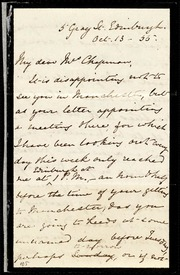 5 Gray St. Edinburgh.
Oct. 13 - 55.
My dear Mrs Chapman,
It is disappointing not to
see you in Manchester, but
as your letter appointing
a meeting there, for which
I have been looking out every
day this week only reached
me at Edinburgh 1 P.M.,
before the time of your getting
to Manchester, & as you
are going to Leeds at some
day before Tuesday
perhaps Sunday, or if not